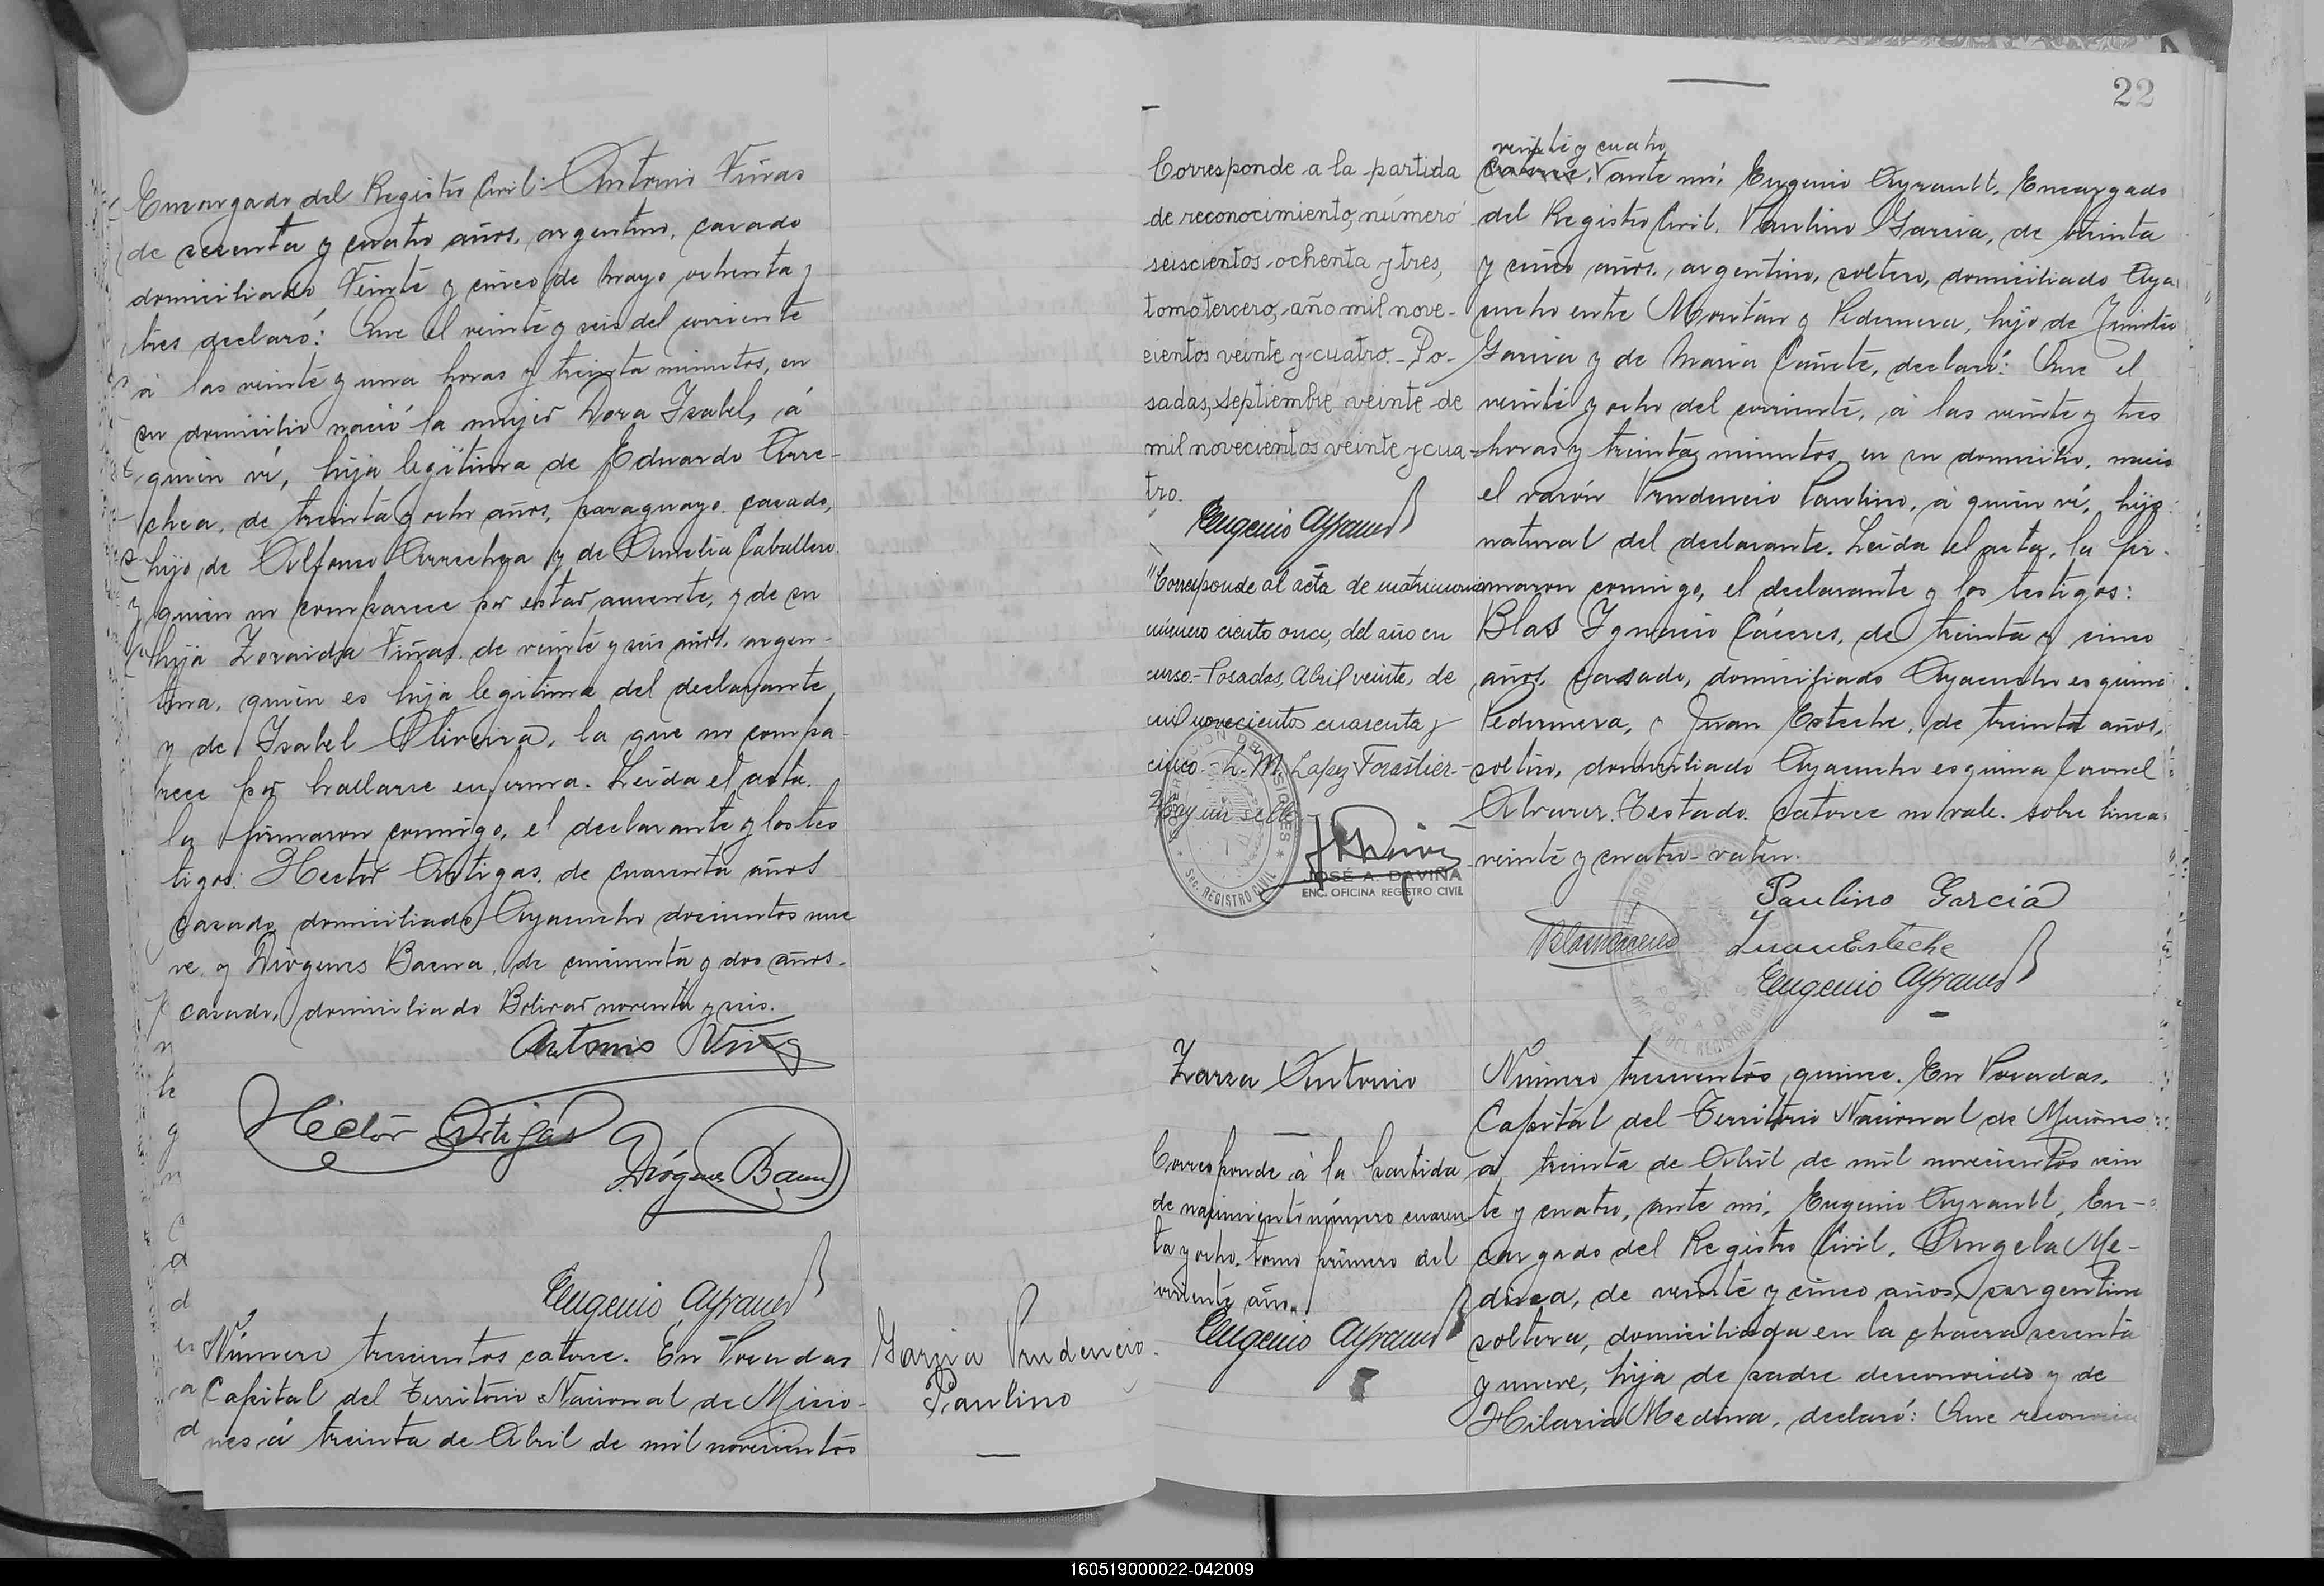 Encargado del Registro Civil: Antonio Viñas
de sesenta y cuatro años, argentino, casado
domiciliado Veinte y cinco de Mayo ochenta y
tres declaró: Que el veinte y seis del corriente
á las veinte y una horas y treinta minutos, en
su domicilio nació la mujer Dora Isabel, á
quien ví, hija legítima de Eduardo Arre-
chea, de treinta y ocho años, paraguayo, casado,
hijo de Alfonso Arrechea y de Amelia Caballero
quien no comparece por estar ausente, y de su
hija Zoraida Viñas de veinte y seis años, argen-
tina, quien es hija legítima del declarante
y de Isabel Oliveira, la que no compa-
rece por hallarse enferma. Leida el acta
la firmaron conmigo, el declarante y los tes
tigos: Hector Artigas, de cuarenta años
casado domiciliado Ayacucho doscientos nue
ve y Diógenes Baena, de cincuenta y dos años
casado, domiciliado Bolivar noventa y seis.
Antonio Viñas
Héctor Artigas
Diógenes Baena
Eugenio Ayrault
Número trescientos catorce. En Posadas
Capital del Territorio Nacional de Misio-
nes á treinta de Abril de mil novecientos
Garzia Prudencio
Paulino
22
Corresponde a la partida
de reconocimiento, número
seiscientos ochenta y tres,
tomo tercero, año mil nove-
cientos veinte y cuatro. - Po-
sadas, septiembre veinte de
mil novecientos veinte y cua-
tro.
Eugenio Ayrault
"Corresponde al acta de matrimonio
número ciento once, del año en
curso.- Posadas, Abril veinte, de
mil novecientos cuarenta y
cinco.- h. M. Lopez Forastier.-
Hay un sello
SEC. REGISTRO CIVIL
JOSÉ A. DAVIÑA
ENC. OFICINA REGISTRO CIVIL
veinte y cuatro
catorce, ante mí, Eugenio Ayrault, Encargado
del Registro Civil, Paulino Garcia, de treinta
y cinco años, argentino, soltero, domiciliado Aya
cucho entre Moritán y Pedernera, hijo de
Garcia y de Maria Cañete, declaró: Que el
veinte y ocho del corriente, á las veinte y tres
horas y treinta minutos en su domicilio, nacio
el varón Prudencio Paulino, á quien ví, hijo
natural del declarante. Leida el acta, la fir-
maron conmigo, el declarante y los testigos:
Blas Ignacio Cáceres, de treinta y cinco
años, casado, domiciliado Ayacucho esquina
Pedernera, y Juan Esteche, de treinta años,
soltero, domiciliado Ayacucho esquina Coronel
Alvarez. Testado. catorce no vale. sobre linea
veinte y cuatro - valen.
Paulino García
Blas Cáceres
Juan Esteche
Eugenio Ayrault
Zarza Antonio
Corresponde á la partida
de nacimiento número cuaren
ta y ocho. tomo primero del
corriente año.
Eugenio Ayrault
Número trescientos quince. En Posadas.
Capital del Territorio Nacional de Misiones
á treinta de Abril de mil novecientos vein
te y cuatro, ante mí, Eugenio Ayrault, En-
cargado del Registro Civil, Angela Me-
dina, de veinte y cinco años, argentina
soltera, domiciliada en la chacra sesenta
y nueve, hija de padre desconocido y de
Hilaria Medina, declaró: Que reconocia
160519000022-042009